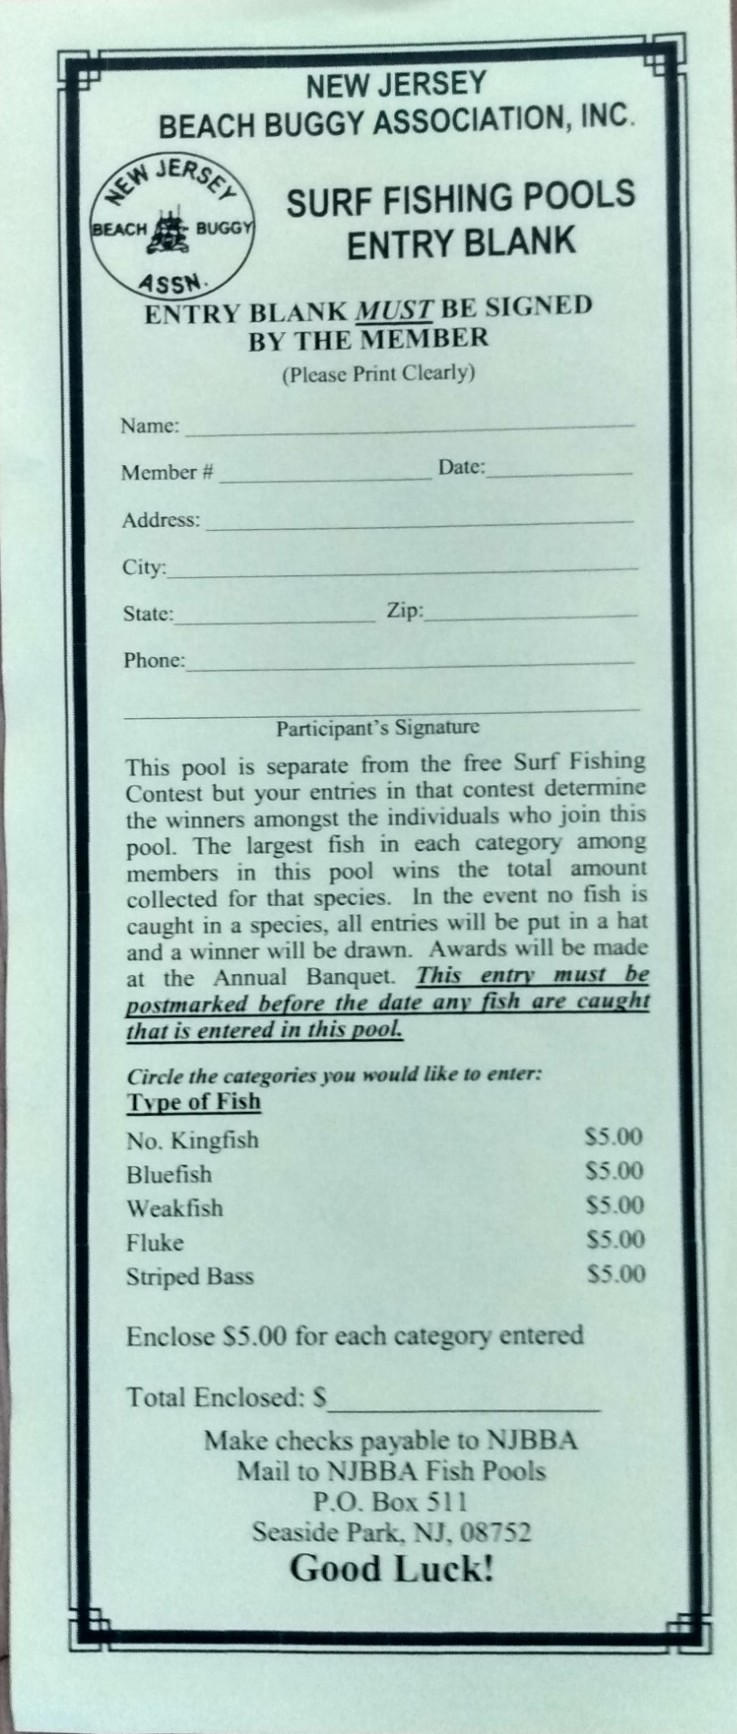 NEW JERSEY
BEACH BUGGY ASSOCIATION, INC.
NEW JERSEY
BEACH BUGGY
ASSN.
SURF FISHING POOLS
ENTRY BLANK
ENTRY BLANK MUST BE SIGNED
BY THE MEMBER
(Please Print Clearly)
Name:
Member # Date:
Address:
City:
State: Zip:
Phone:
Participant's Signature
This pool is separate from the free Surf Fishing
Contest but your entries in that contest determine
the winners amongst the individuals who join this
pool. The largest fish in each category among
members in this pool wins the total amount
collected for that species. In the event no fish is
caught in a species, all entries will be put in a hat
and a winner will be drawn. Awards will be made
at the Annual Banquet. This entry must be
postmarked before the date any fish are caught
that is entered in this pool.
Circle the categories you would like to enter:
Type of Fish
No. Kingfish $5.00
Bluefish $5.00
Weakfish $5.00
Fluke $5.00
Striped Bass $5.00
Enclose $5.00 for each category entered
Total Enclosed: $
Make checks payable to NJBBA
Mail to NJBBA Fish Pools
P.O. Box 511
Seaside Park, NJ, 08752
Good Luck!